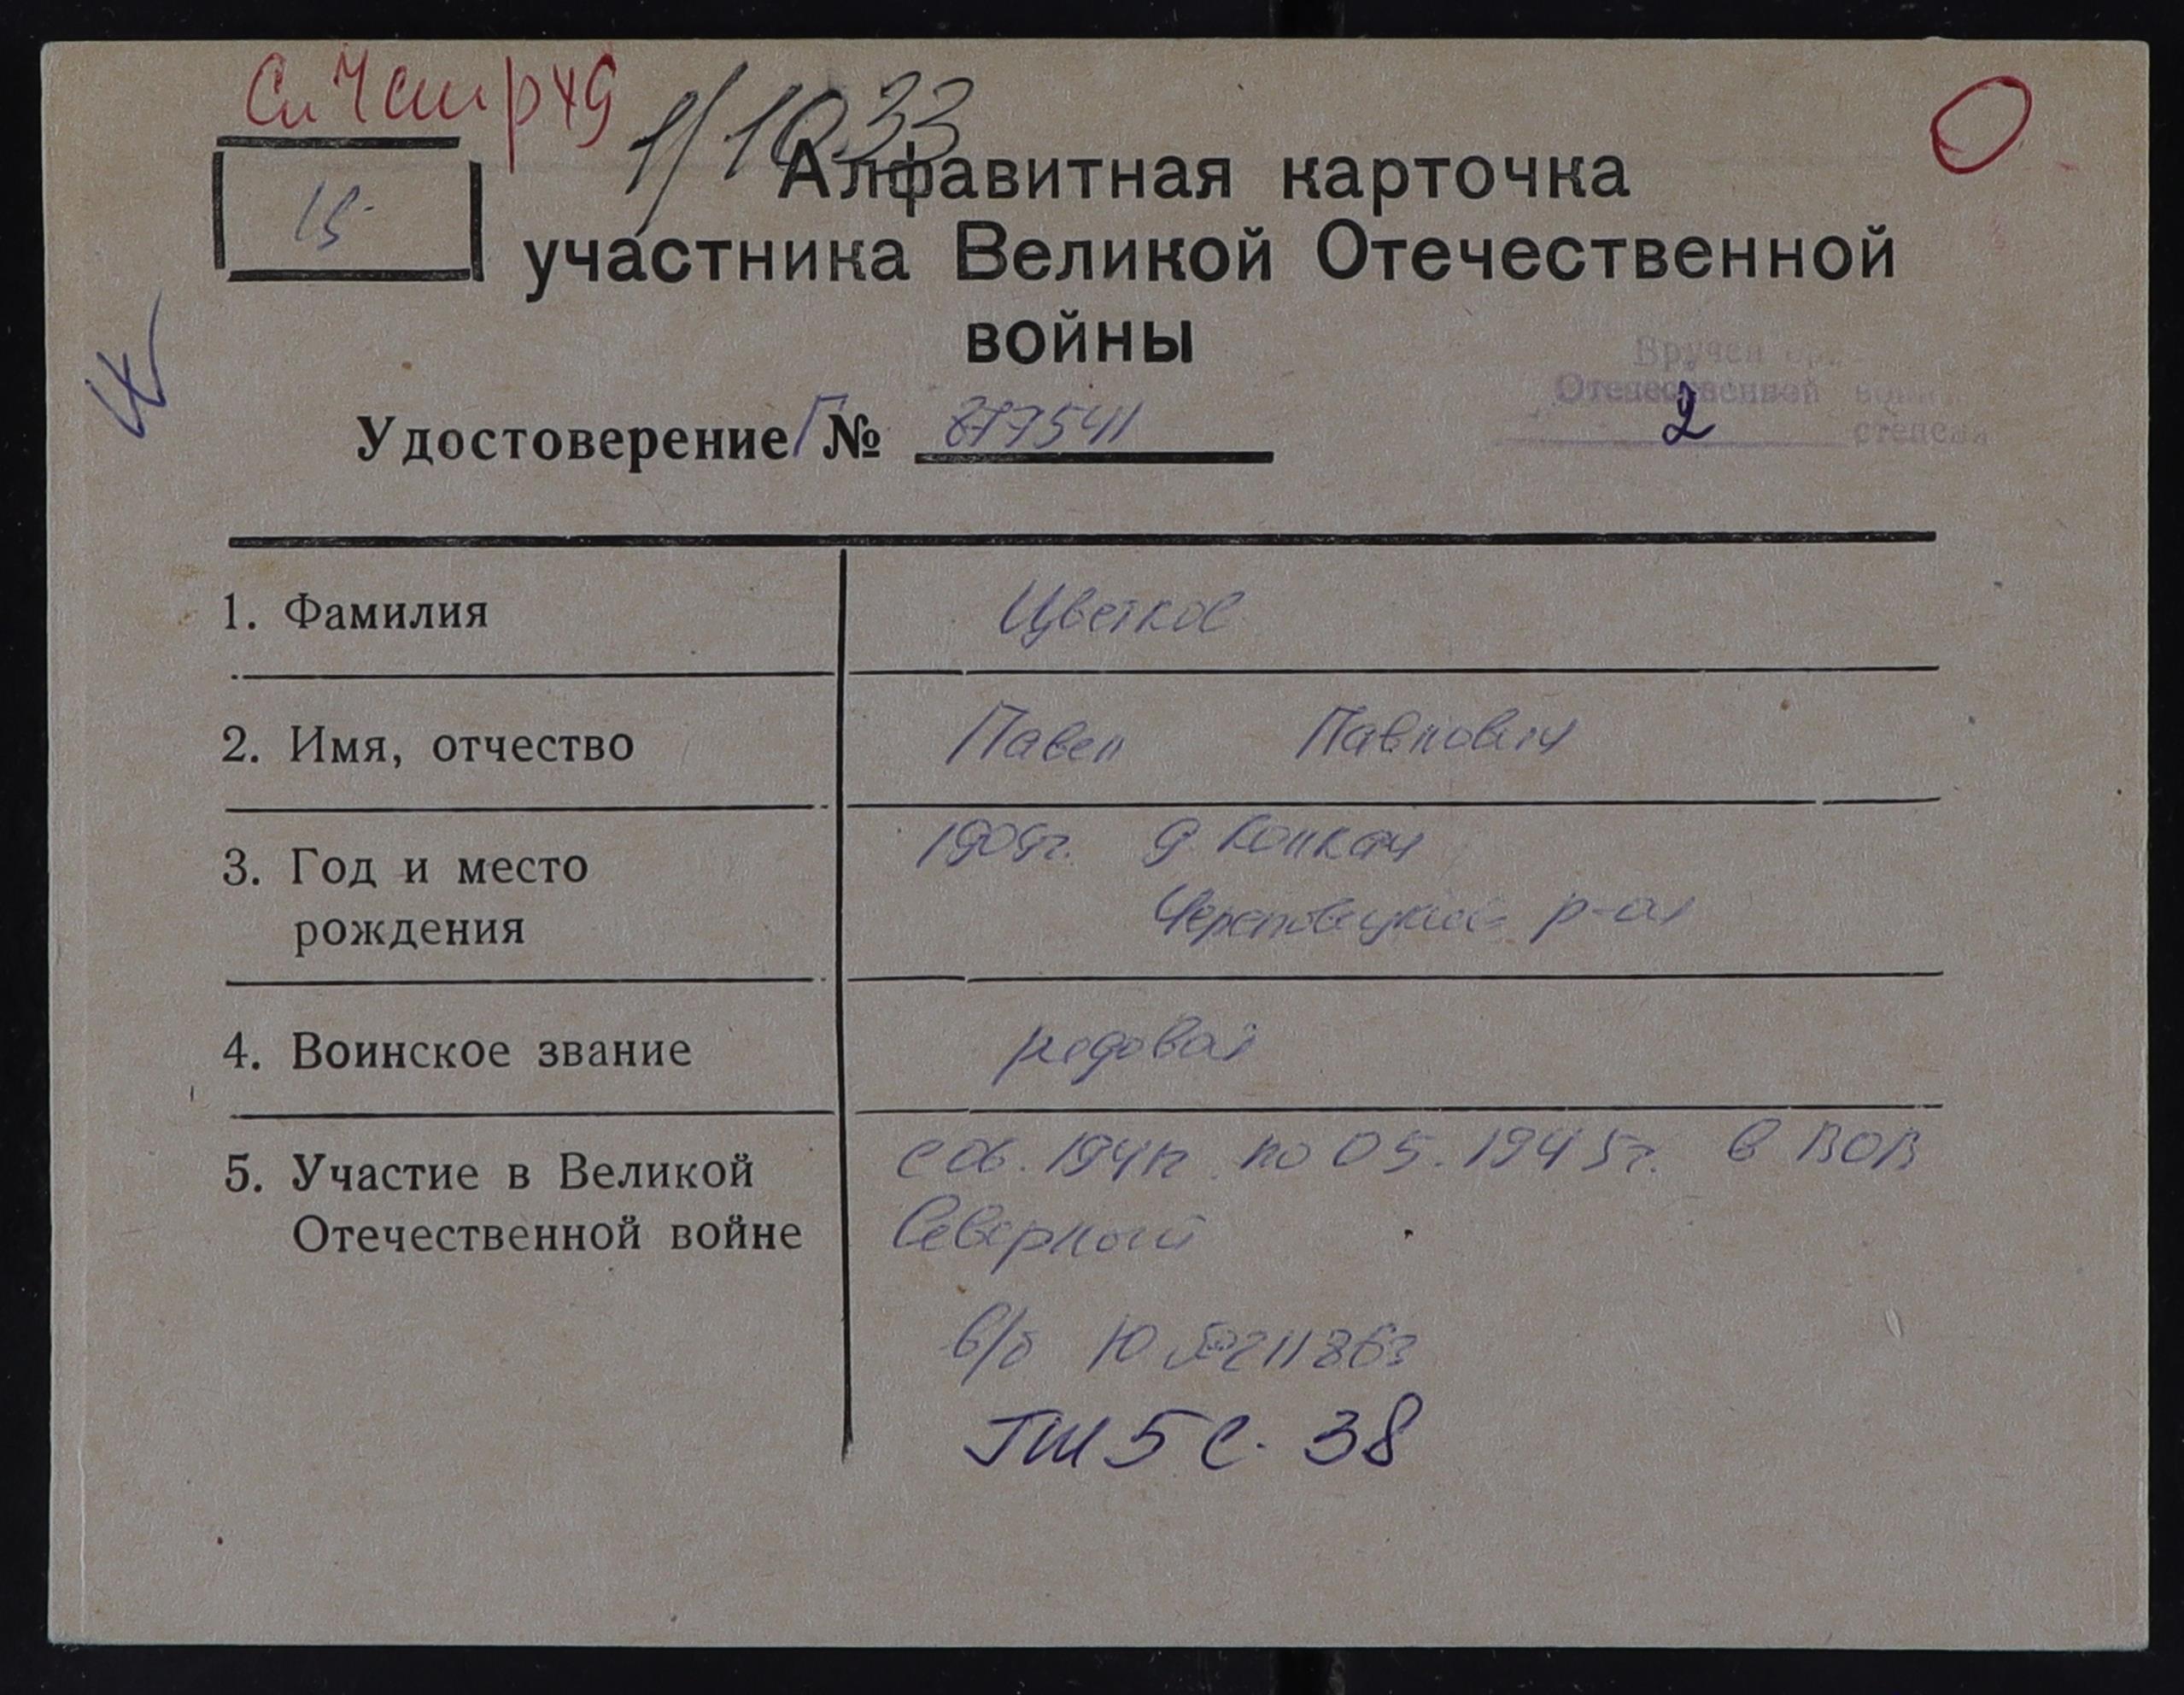 Сп 4 стр 49
1/1033
15
Алфавитная карточка
участника Великой Отечественной
войны
Вручен
Отечественной
2 степени
Удостоверение Г № 877541
1. Фамилия Цветков
2. Имя, отчество Павел Павлович
3. Год и место 1909г. д
рождения Череповецкий р-он
4. Воинское звание рядовой
5. Участие в Великой с 06.1941г по 05.1945г. в ВОВ
Отечественной войне Северный
в/б Ю №211863
ТШ 5 С. 38